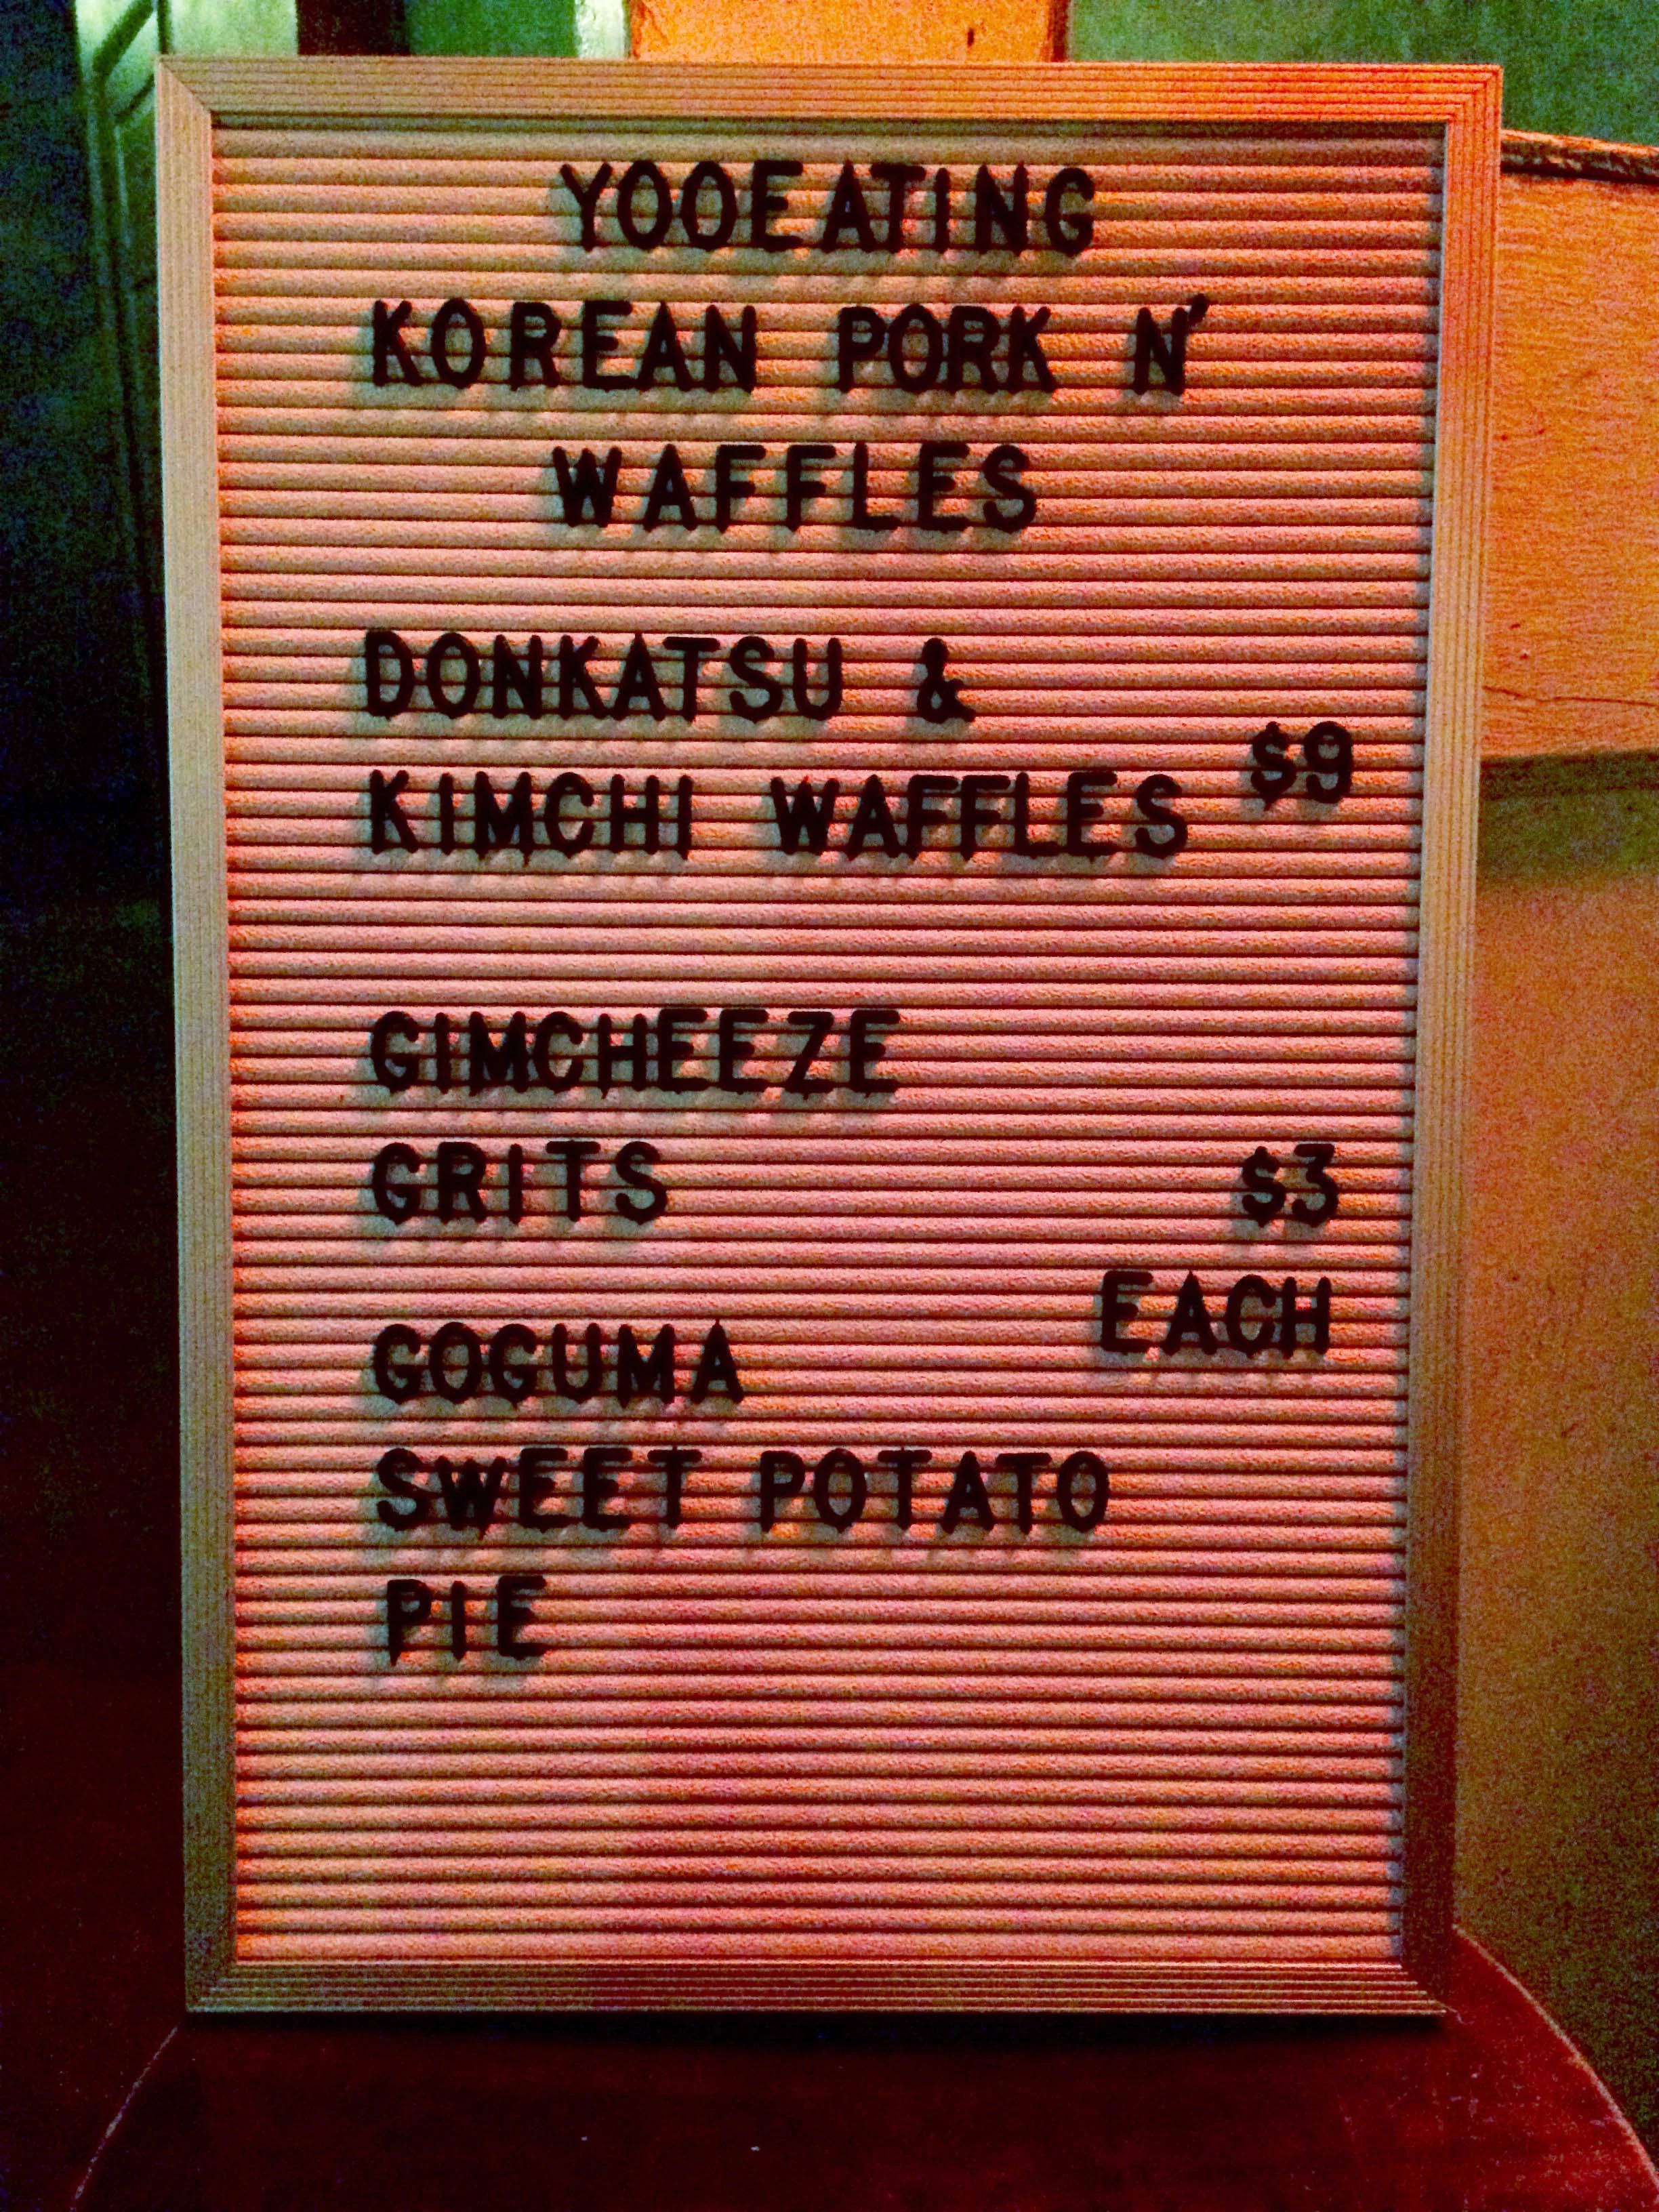 YOOEATING
KOREAN PORK N'
WAFFLES
DONKATSU &
$9
KIMCHI WAFFLES
GIMCHEEZE
GRITS $3
EACH
GOGUMA
SWEET POTATO
PIE